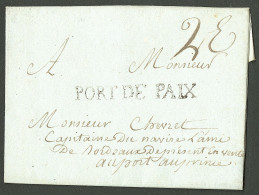 2E
A Monsieur
PORT DE PAIX
Monsieur Chevret
Capitaine Du navire L'aimé
De Bordeaux Depresent en
au port au prince